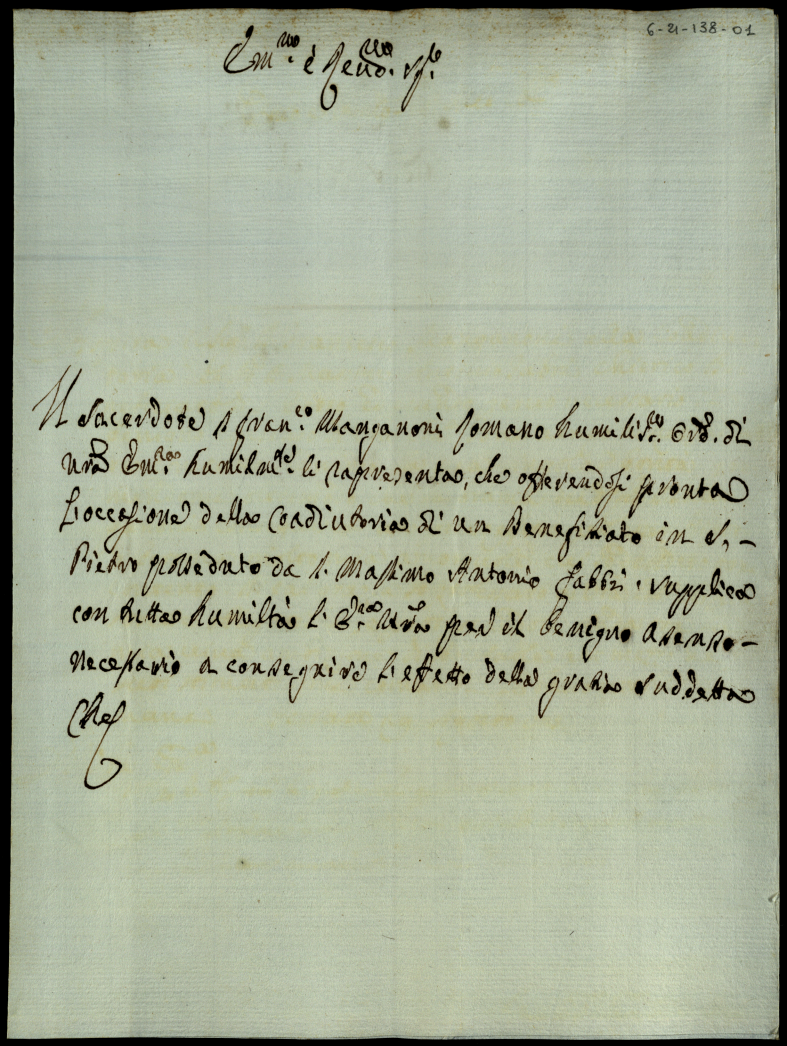 6-21-138-01
Em.mo è Reud.mo Sig.re
Il Sacerdote Fran.co Manganoni Romano humilis.mo Or.e di
ur̃a Em.za humilm.te li rapresenta, che offerendosi pronta
l'occasione della Coadiutoria di un Benefitiato in S. -
Pietro posseduto da Massimo Antonio Fabbri, supplica
con tutta humiltà l' E.za ur̃a per il benigno asenso -
necessario a conseguire l'effetto della gratia suddetta
Che